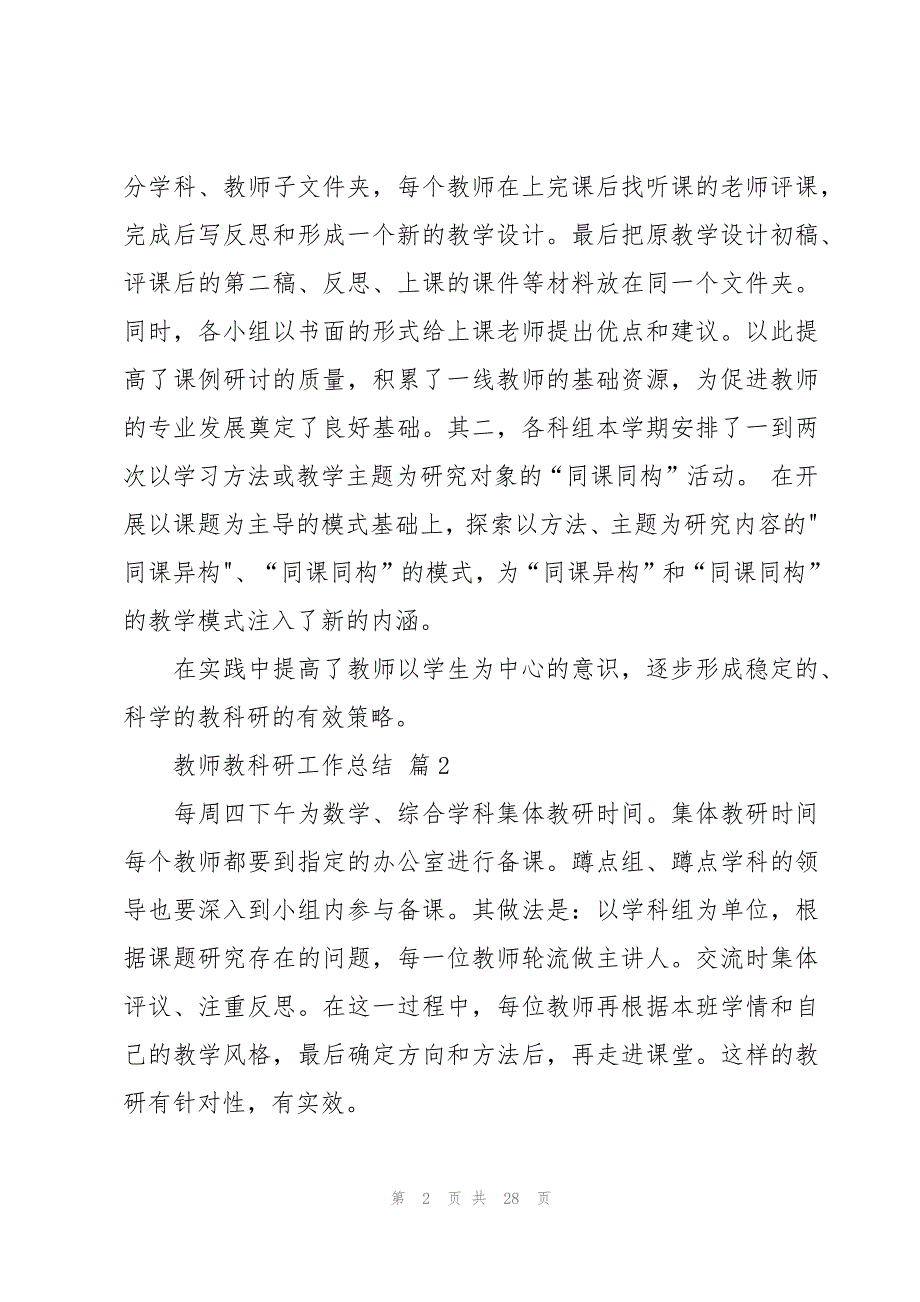 分学科、教师子文件夹，每个教师在上完课后找听课的老师评课，
完成后写反思和形成一个新的教学设计。最后把原教学设计初稿、
评课后的第二稿、反思、上课的课件等材料放在同一个文件夹。
同时，各小组以书面的形式给上课老师提出优点和建议。以此提
高了课例研讨的质量，积累了一线教师的基础资源，为促进教师
的专业发展奠定了良好基础。其二，各科组本学期安排了一到两
次以学习方法或教学主题为研究对象的“同课同构”活动。 在开
展以课题为主导的模式基础上，探索以方法、主题为研究内容的"
同课异构"、“同课同构”的模式，为“同课异构”和“同课同构”
的教学模式注入了新的内涵。
在实践中提高了教师以学生为中心的意识，逐步形成稳定的、
科学的教科研的有效策略。
教师教科研工作总结 篇2
每周四下午为数学、综合学科集体教研时间。集体教研时间
每个教师都要到指定的办公室进行备课。蹲点组、蹲点学科的领
导也要深入到小组内参与备课。其做法是：以学科组为单位，根
据课题研究存在的问题，每一位教师轮流做主讲人。交流时集体
评议、注重反思。在这一过程中，每位教师再根据本班学情和自
己的教学风格，最后确定方向和方法后，再走进课堂。这样的教
研有针对性，有实效。
第 2 页 共 28 页